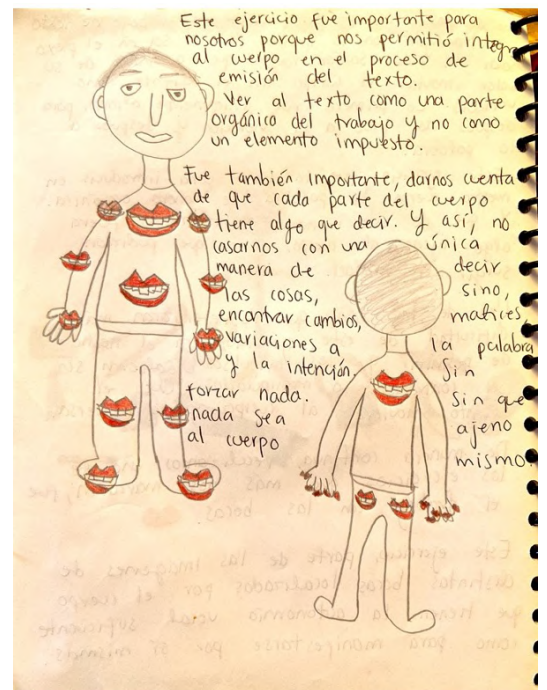 Este ejercicio fue importante para
nosotros porque nos permitió integra
al cuerpo en el proceso de
emisión del texto.
Ver al texto como una parte
orgánico del trabajo y no como
un elemento impuesto.
Fue también importante, darnos cuenta
de que cada parte del cuerpo
tiene algo que decir. Y así, no
casarnos con una única
manera de decir
las cosas, sino,
encontrar cambios, matices,
variaciones a la palabra
y la intención. Sin
forzar nada. Sin que
nada sea ajeno
al cuerpo mismo.